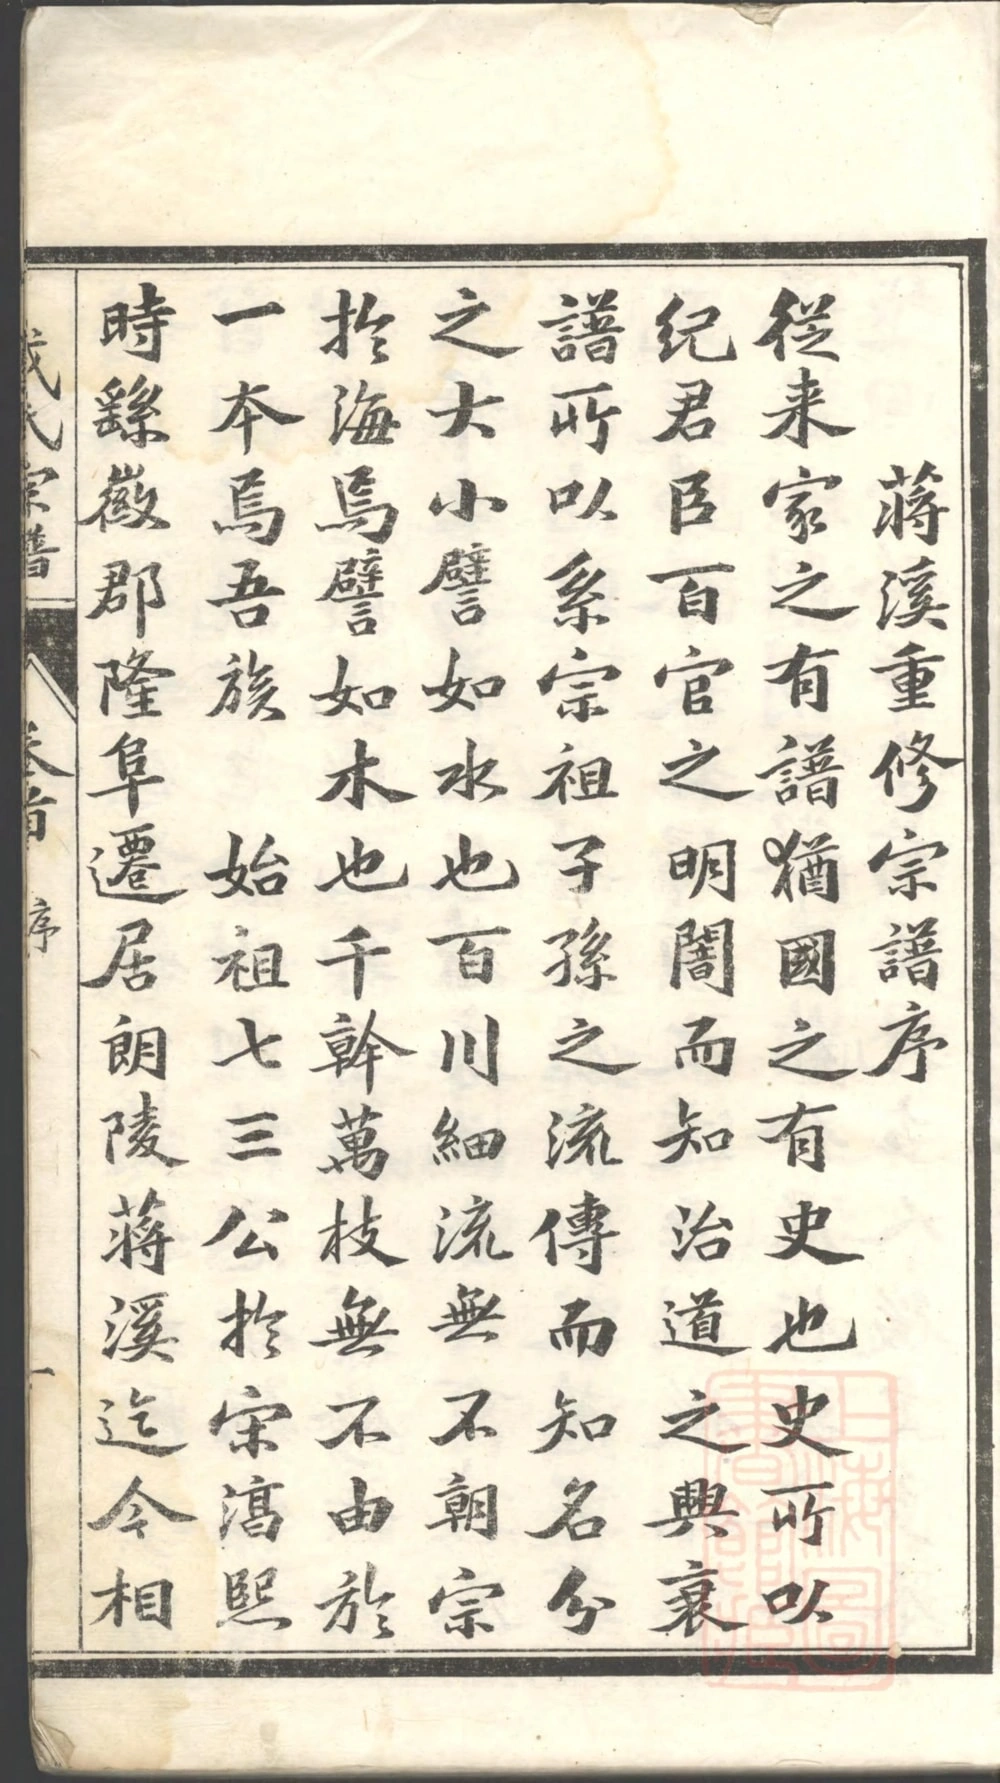 蔣溪重修宗譜序
從来家之有譜猶國之有史也史所以
纪君臣百官之明闇而知治道之興衰
譜所以系宗祖子孫之流傳而知名分
之大小譬如水也百川細流無不朝宗
扵海焉譬如木也千幹萬枝無不由於
一本焉吾族 始祖七三公扵宋淳熙
時繇徽郡隆阜遷居朗陵蔣溪迄今相
氏宗譜
卷首
序
一
上海圖書館藏